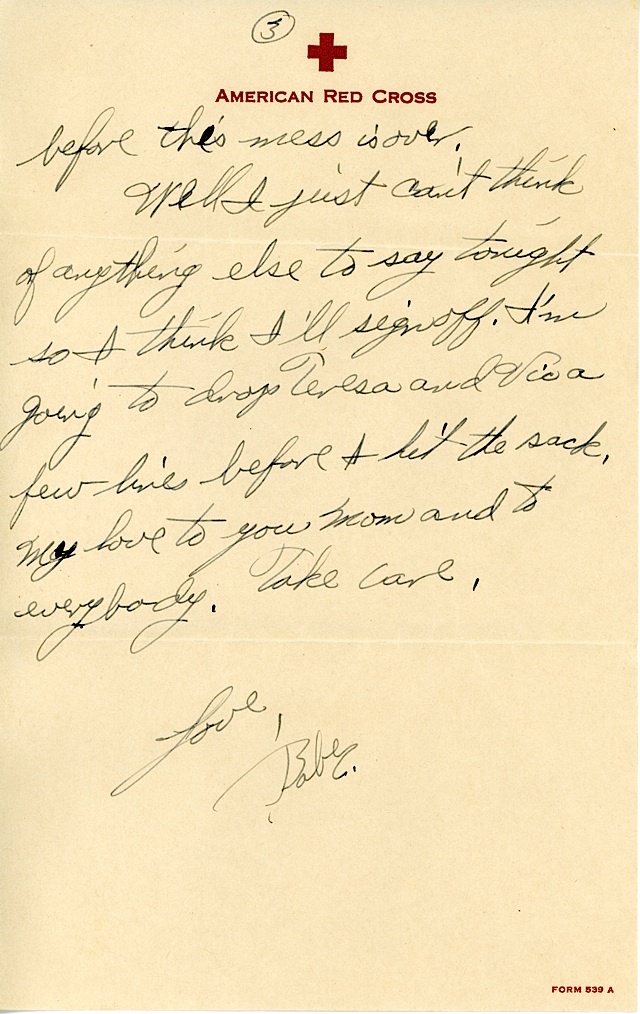 3
AMERICAN RED CROSS
before this mess is over.
Well I just can't think
of anything else to say tonight
so I think I'll sign off. I'm
going to drop Teresa and Vic a
few lines before I hit the sack.
My love to you Mom and to
everybody. Take care.
Love,
Babe.
FORM 539 A